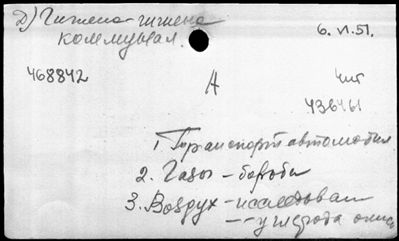 Д) Гигиена-гигиена
коммунал.
6.VI.51.
468842
А
Чит
436461
1 Транспорт автомобил
2. Газы - борьба
3. Воздух - исследован
-"- углерода окись